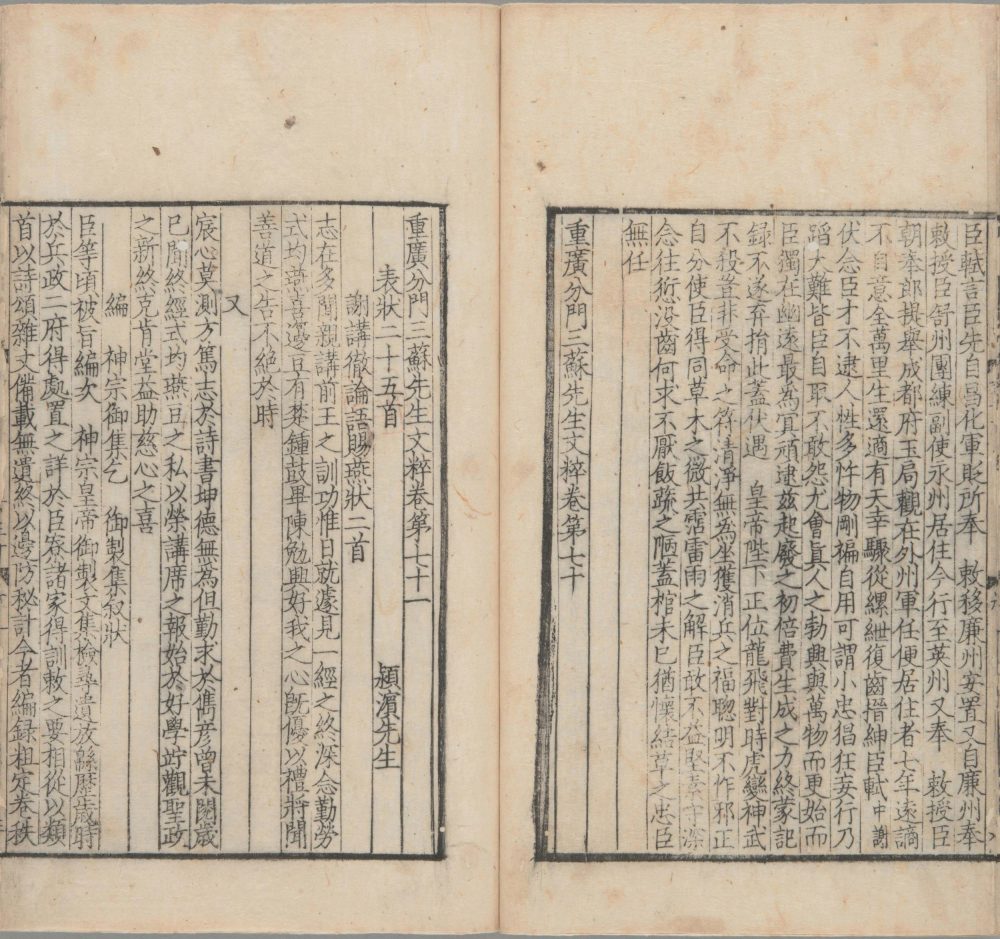 臣軾言臣先自昌化軍貶所奉 敕移廉州安置又自廉州奉
敕授臣舒州團練副使永州居住今行至英州又奉 敕授臣
朝奉郎提舉成都府玉局觀在外州軍任便居住者七年遠謫
不自意全萬里生還適有天幸驟從縲紲復齒搢紳臣軾中謝
伏念臣才不逮人性多忤物剛褊自用可謂小忠猖狂妄行乃
蹈大難皆臣自取不敢怨尤會真人之勃興與萬物而更始而
臣獨在幽遠最為冥頑逮茲起廢之初倍費生成之力終蒙記
錄不遂弃捐此蓋伏遇 皇帝陛下正位龍飛對時虎變神武
不殺豈非受命之符清淨無為坐獲消兵之福聰明不作邪正
自分使臣得同草木之微共霑雷雨之解臣敢不益堅素守深
念往愆沒齒何求不厭飯蔬之陋蓋棺未已猶懷結草之忠臣
無任
重廣分門三蘇先生文粹卷第七十
重廣分門三蘇先生文粹卷第七十一
表狀二十五首 潁濱先生
謝講徹論語賜燕狀二首
志在多聞親講前王之訓功惟日就遽見一經之終深念勤勞
式均燕喜籩豆有楚鍾鼓畢陳勉興好我之心既優以禮將聞
善道之告不絕於時
又
宸心莫測方篤志於詩書坤德無為但勤求於儁彦曾未閱歲
已聞終經式均燕豆之私以榮講席之報始於好學竚觀聖政
之新終克肯堂益助慈心之喜
編 神宗御集乞 御製集叙狀
臣等頃被旨編次 神宗皇帝御製文集檢尋遺放緜歷歲時
於兵政二府得處置之詳於臣寮諸家得訓敕之要相從以類
首以詩頌雜文備載無遺終以邊防秘計今者編録粗定卷秩